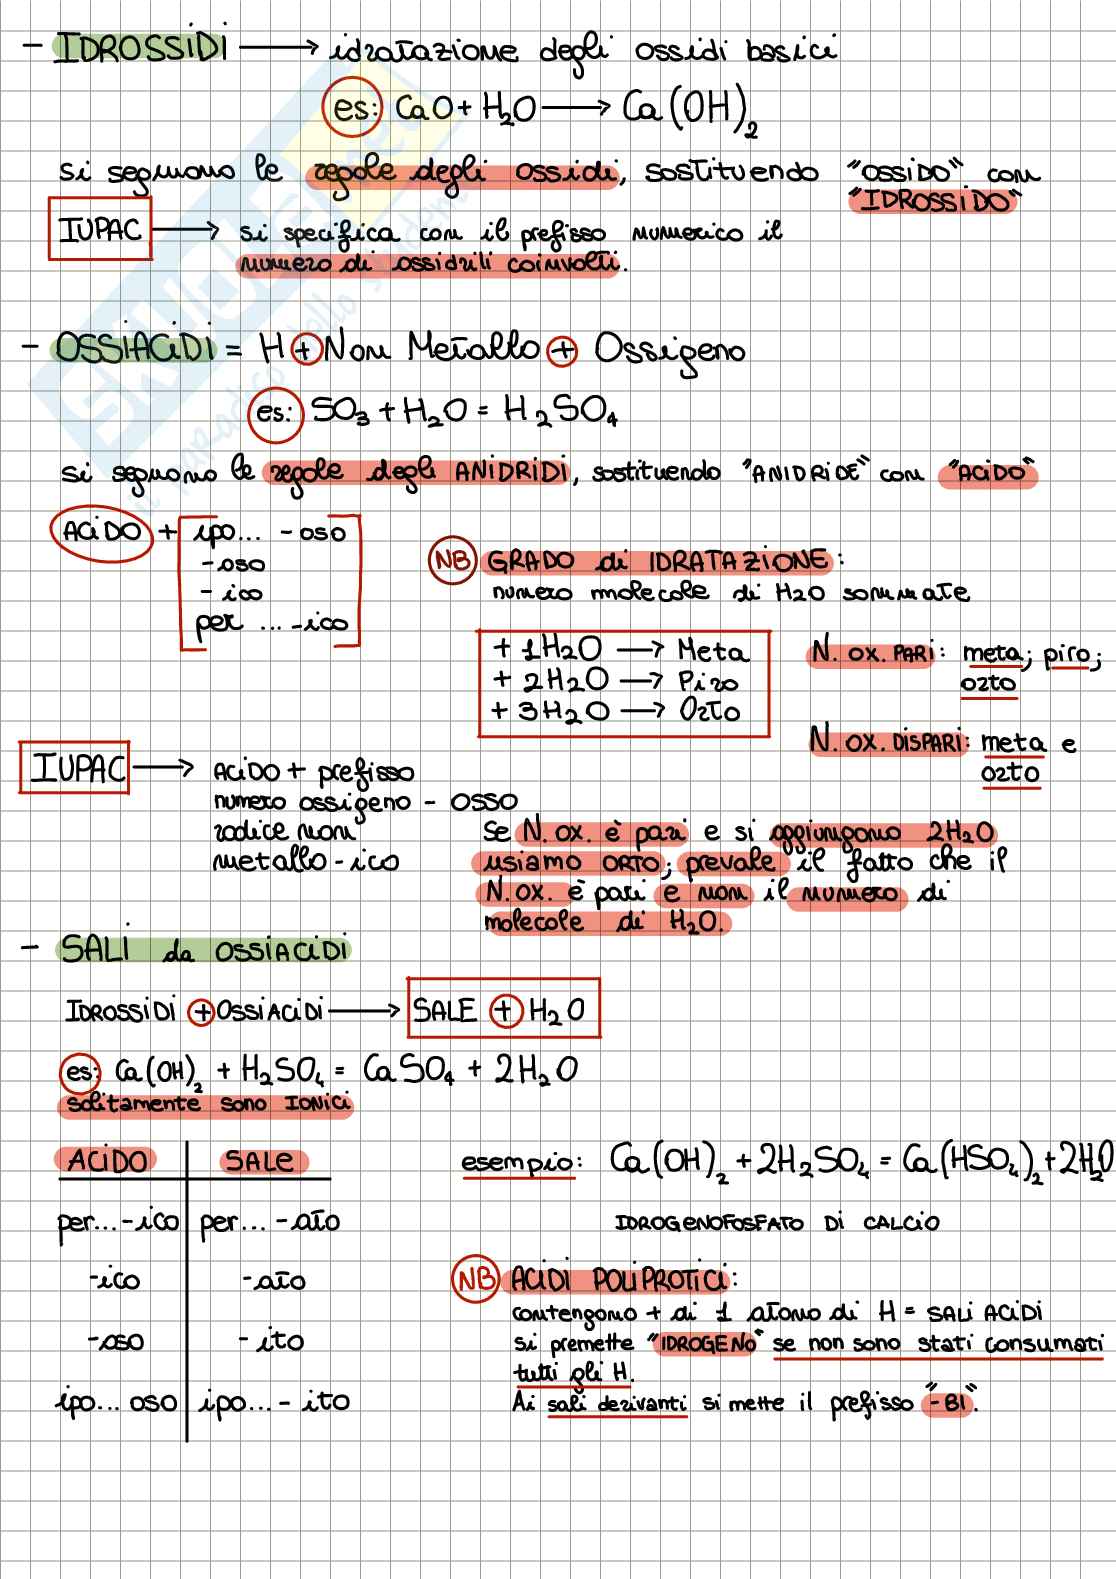 - IDROSSIDI ⟶ idratazione degli ossidi basici
es: CaO + H₂O ⟶ Ca(OH)₂
si seguono le regole degli ossidi, sostituendo "OSSIDO" con
"IDROSSIDO"
IUPAC ⟶ si specifica con il prefisso numerico il
numero di ossidrili coinvolti.
- OSSIACIDI = H + Non Metallo + Ossigeno
es: SO₃ + H₂O = H₂SO₄
si seguono le regole degli ANIDRIDI, sostituendo "ANIDRIDE" con "ACIDO"
ACIDO + ipo... -oso
-oso
-ico
per ... -ico
NB GRADO di IDRATAZIONE:
numero molecole di H2O sommate
+ 1H2O ⟶ Meta
+ 2H2O ⟶ Piro
+ 3H2O ⟶ Orto
N. ox. PARI: meta; piro;
orto
N. OX. DISPARI: meta e
orto
IUPAC ⟶ ACIDO + prefisso
numero ossigeno - OSSO
radice non
metallo - ico
Se N. ox. è pari e si aggiungono 2H2O
usiamo ORTO; prevale il fatto che il
N. OX. è pari e non il numero di
molecole di H₂O.
- SALI da OSSIACIDI
IDROSSIDI + OSSIACIDI ⟶ SALE + H₂O
es: Ca(OH)₂ + H₂SO₄ = CaSO₄ + 2H₂O
solitamente sono IONICI
ACIDO SALE
per...-ico per... -ato
-ico -ato
-oso -ito
ipo... oso ipo... - ito
esempio: Ca(OH)₂ + 2H₂SO₄ = Ca(HSO₄)₂ + 2H₂O
IDROGENOFOSFATO DI CALCIO
NB ACIDI POLIPROTICI:
contengono + di 1 atomo di H = SALI ACIDI
si premette "IDROGENO" se non sono stati consumati
tutti gli H.
Ai sali derivanti si mette il prefisso "-BI".